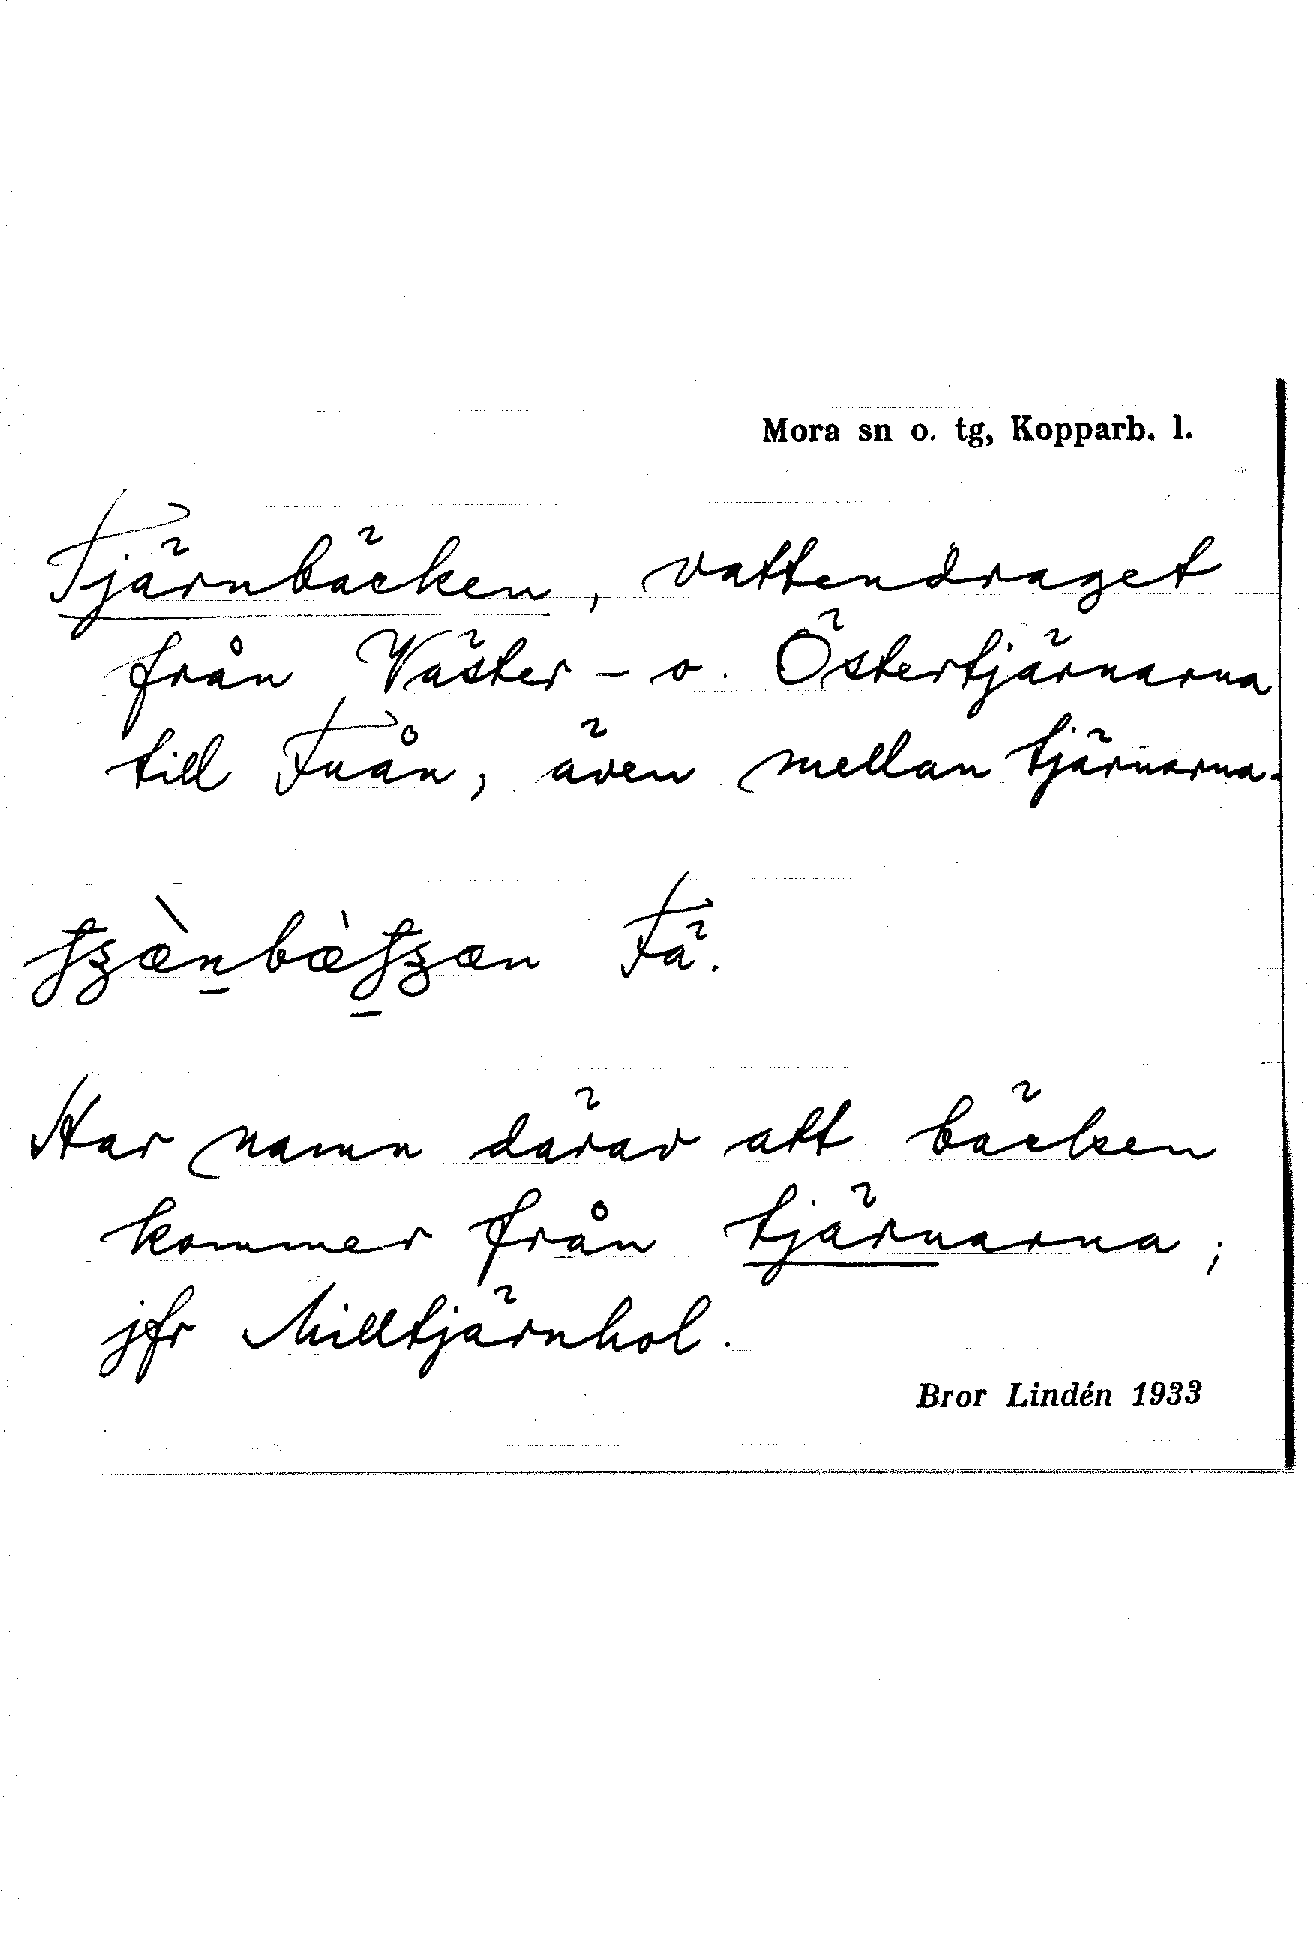 Mora sn o. tg, Kopparb. l.
Tjärnbäcken, vattendraget
från Väster- o. Östertjärnarna
till Fuån, även mellan tjärnarna.
Fä.
Har namn därav att bäcken
kommer från tjärnarna;
jfr Milltjärnhol.
Bror Lindén 1933